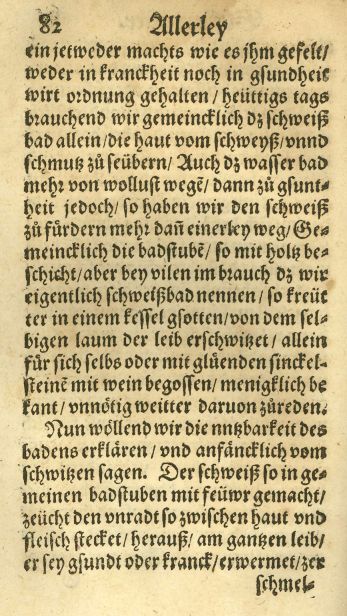 82 Allerley
ein jetweder machts wie es jhm gefelt/
weder in kranckheit noch in gsundheit
wirt ordnung gehalten/ heüttigs tags
brauchend wir gemeincklich dz schweiß
bad allein/ die haut vom schweyß/ vnnd
schmutz zů seübern/ Auch dz wasser bad
mehr von wollust wegē/ dann zů gsunt-
heit jedoch/ so haben wir den schweiß
zů fürdern mehr dañ einerley weg/ Ge-
meincklich die badstubē/ so mit holtz be-
schicht/ aber bey vilen im brauch dz wir
eigentlich schweißbad nennen/ so kreüt
ter in einem kessel gsotten/ von dem sel-
bigen laum der leib erschwitzet/ allein
für sich selbs oder mit glüenden sinckel-
steinē mit wein begossen/ menigklich be
kant/ vnnötig weitter daruon zůreden.
Nun wöllend wir die nntzbarkeit des
badens erklären/ vnd anfäncklich vom
schwitzen sagen. Der schweiß so in ge-
meinen badstuben mit feüwr gemacht/
zeücht den vnradt so zwischen haut vnd
fleisch stecket/ herauß/ am gantzen leib/
er sey gsundt oder kranck/ erwermet/ zer
schmel-